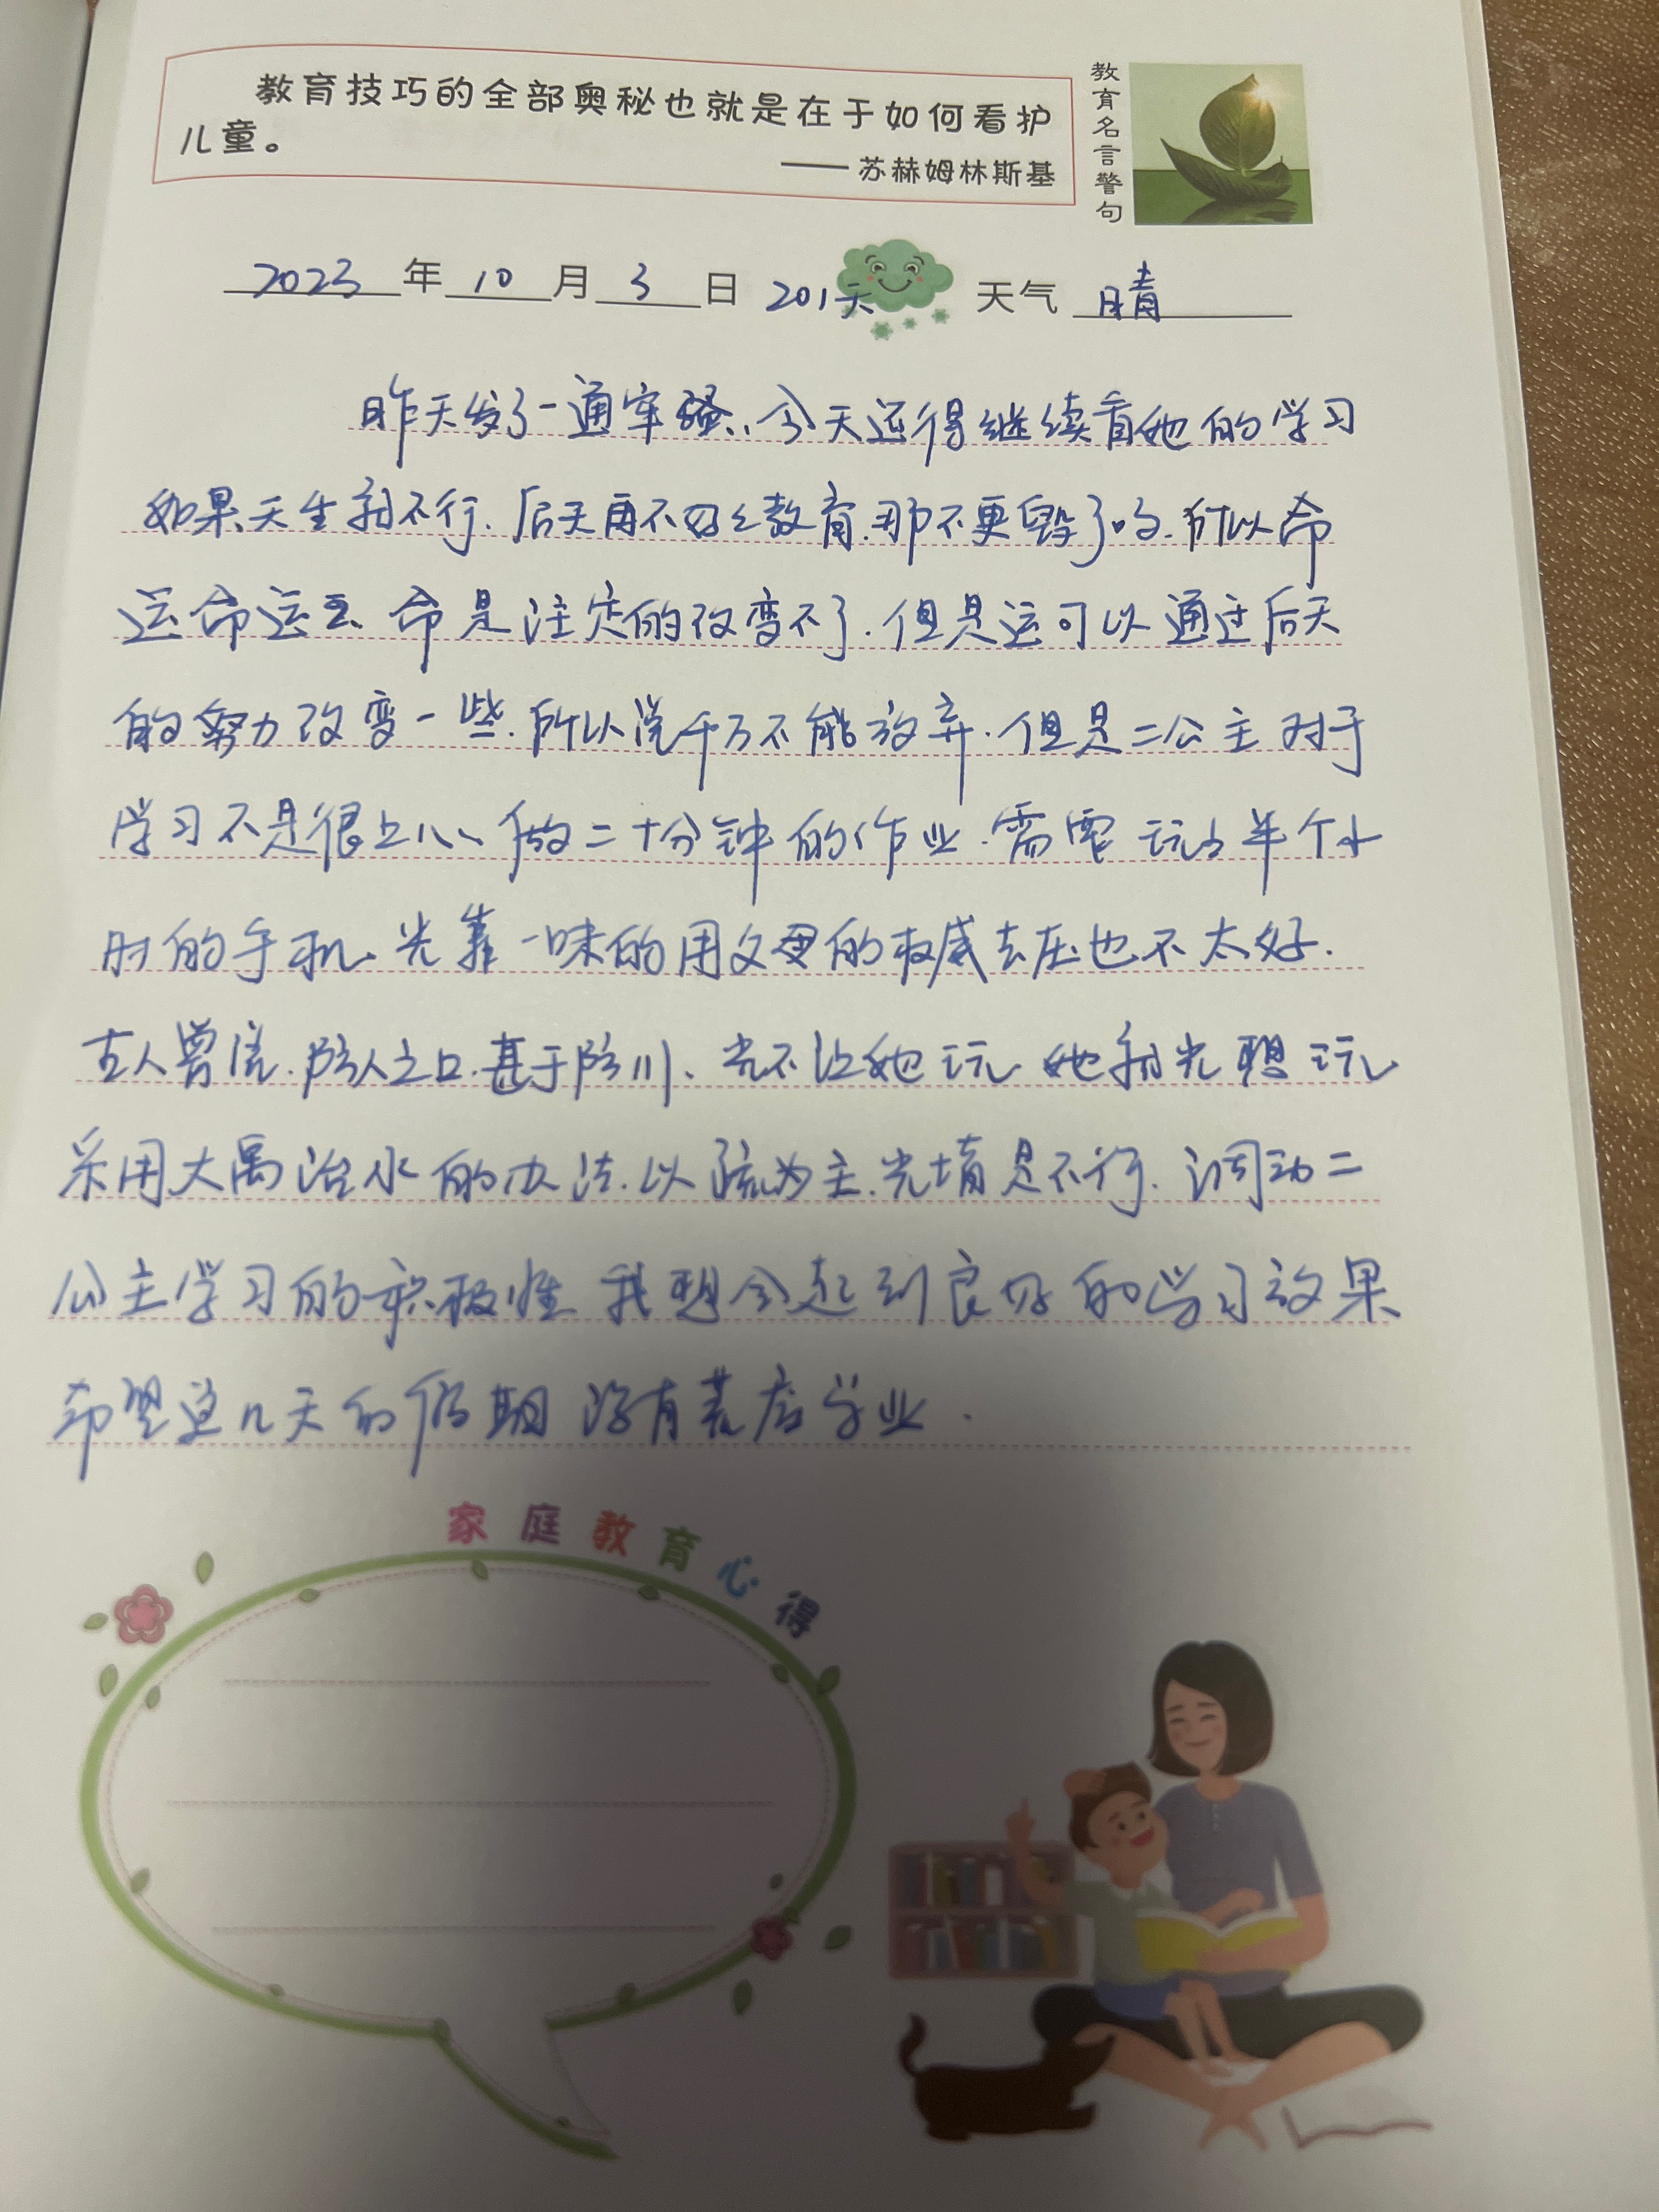 教育技巧的全部奥秘也就是在于如何看护
儿童。
—— 苏赫姆林斯基
教育名言警句
2023 年 10 月 3 日 201天 天气 晴
昨天发了一通牢骚,今天还得继续看她的学习
如果天生就不行.后天再不好好教育.那不更毁了吗.所以命
运命运 命是注定的改变不了.但是运可以通过后天
的努力改变一些.所以说千万不能放弃.但是二公主对于
学习不是很上心、做二十分钟的作业.需要玩上半个小
时的手机、光靠一味的用父母的权威去压也不太好.
古人曾说.防人之口.甚于防川、光不让她玩.她就光想玩
采用大禹治水的办法.以疏为主.光堵是不行.调动二
公主学习的积极性 我想会起到良好的学习效果
希望这几天的假期没有荒废学业.
家庭教育心得